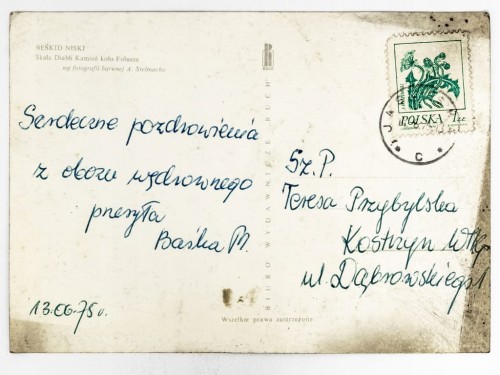 BESKID NISKI
Skała Diabli Kamień koło Folusza
wg fotografii barwnej A. Stelmacha
Serdeczne pozdrowienia
z obozu wędrownego
przesyła
Baśka M.
13.06.75r.
BIURO WYDAWNICZE "RUCH"
Wszelkie prawa zastrzeżone
POLSKA 1ZŁ
C
Sz.P.
Teresa Przybylska
Kostrzyn Wlkp
ul. Dąbrowskiego 1